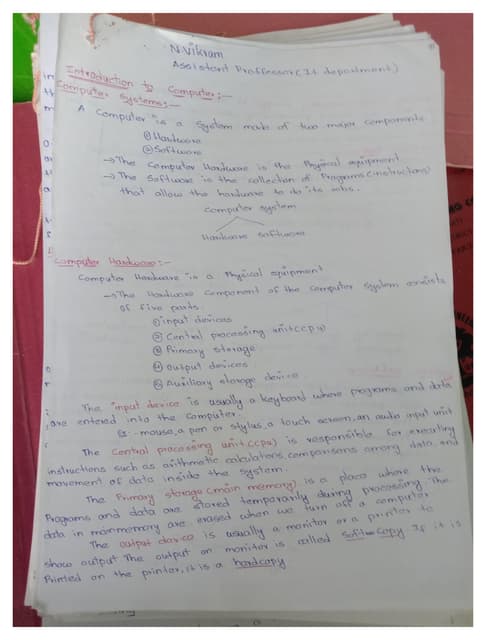 N.Vikram
Assistant Proffessor(It department)
Introduction to Computer:-
Computer Systems:-
A Computer is a system made of two major components
① Hardware
② Software
→ The Computer Hardware is the Physical equipment.
→ The Software is the collection of Programs (instructions)
that allow the hardware to do its jobs.
Computer system
Hardware Software
Computer Hardware:-
Computer Hardware is a Physical equipment
→ The Hardware Component of the Computer system consists
of five parts.
① input devices
② Central processing unit(cpu)
③ Primary storage
④ output devices
⑤ Auxiliary storage device
The input device is usually a keyboard where programs and data
,are entered into the Computer.
Ex:-mouse,a pen or stylus,a touch screen,an audio input unit
The Central processing unit(cpu) is responsible for executing
instructions such as arithmetic calculators comparisons among data and
movement of data inside the system.
The Primary storage(main memory) is a place where the
Programs and data are stored temporarily during processing The
data in mainmemory are erased when we turn off a computer
The output device is usually a monitor or a printer to
show output The output on monitor is called softcopy If it is
Printed on the printer,it is a hardcopy